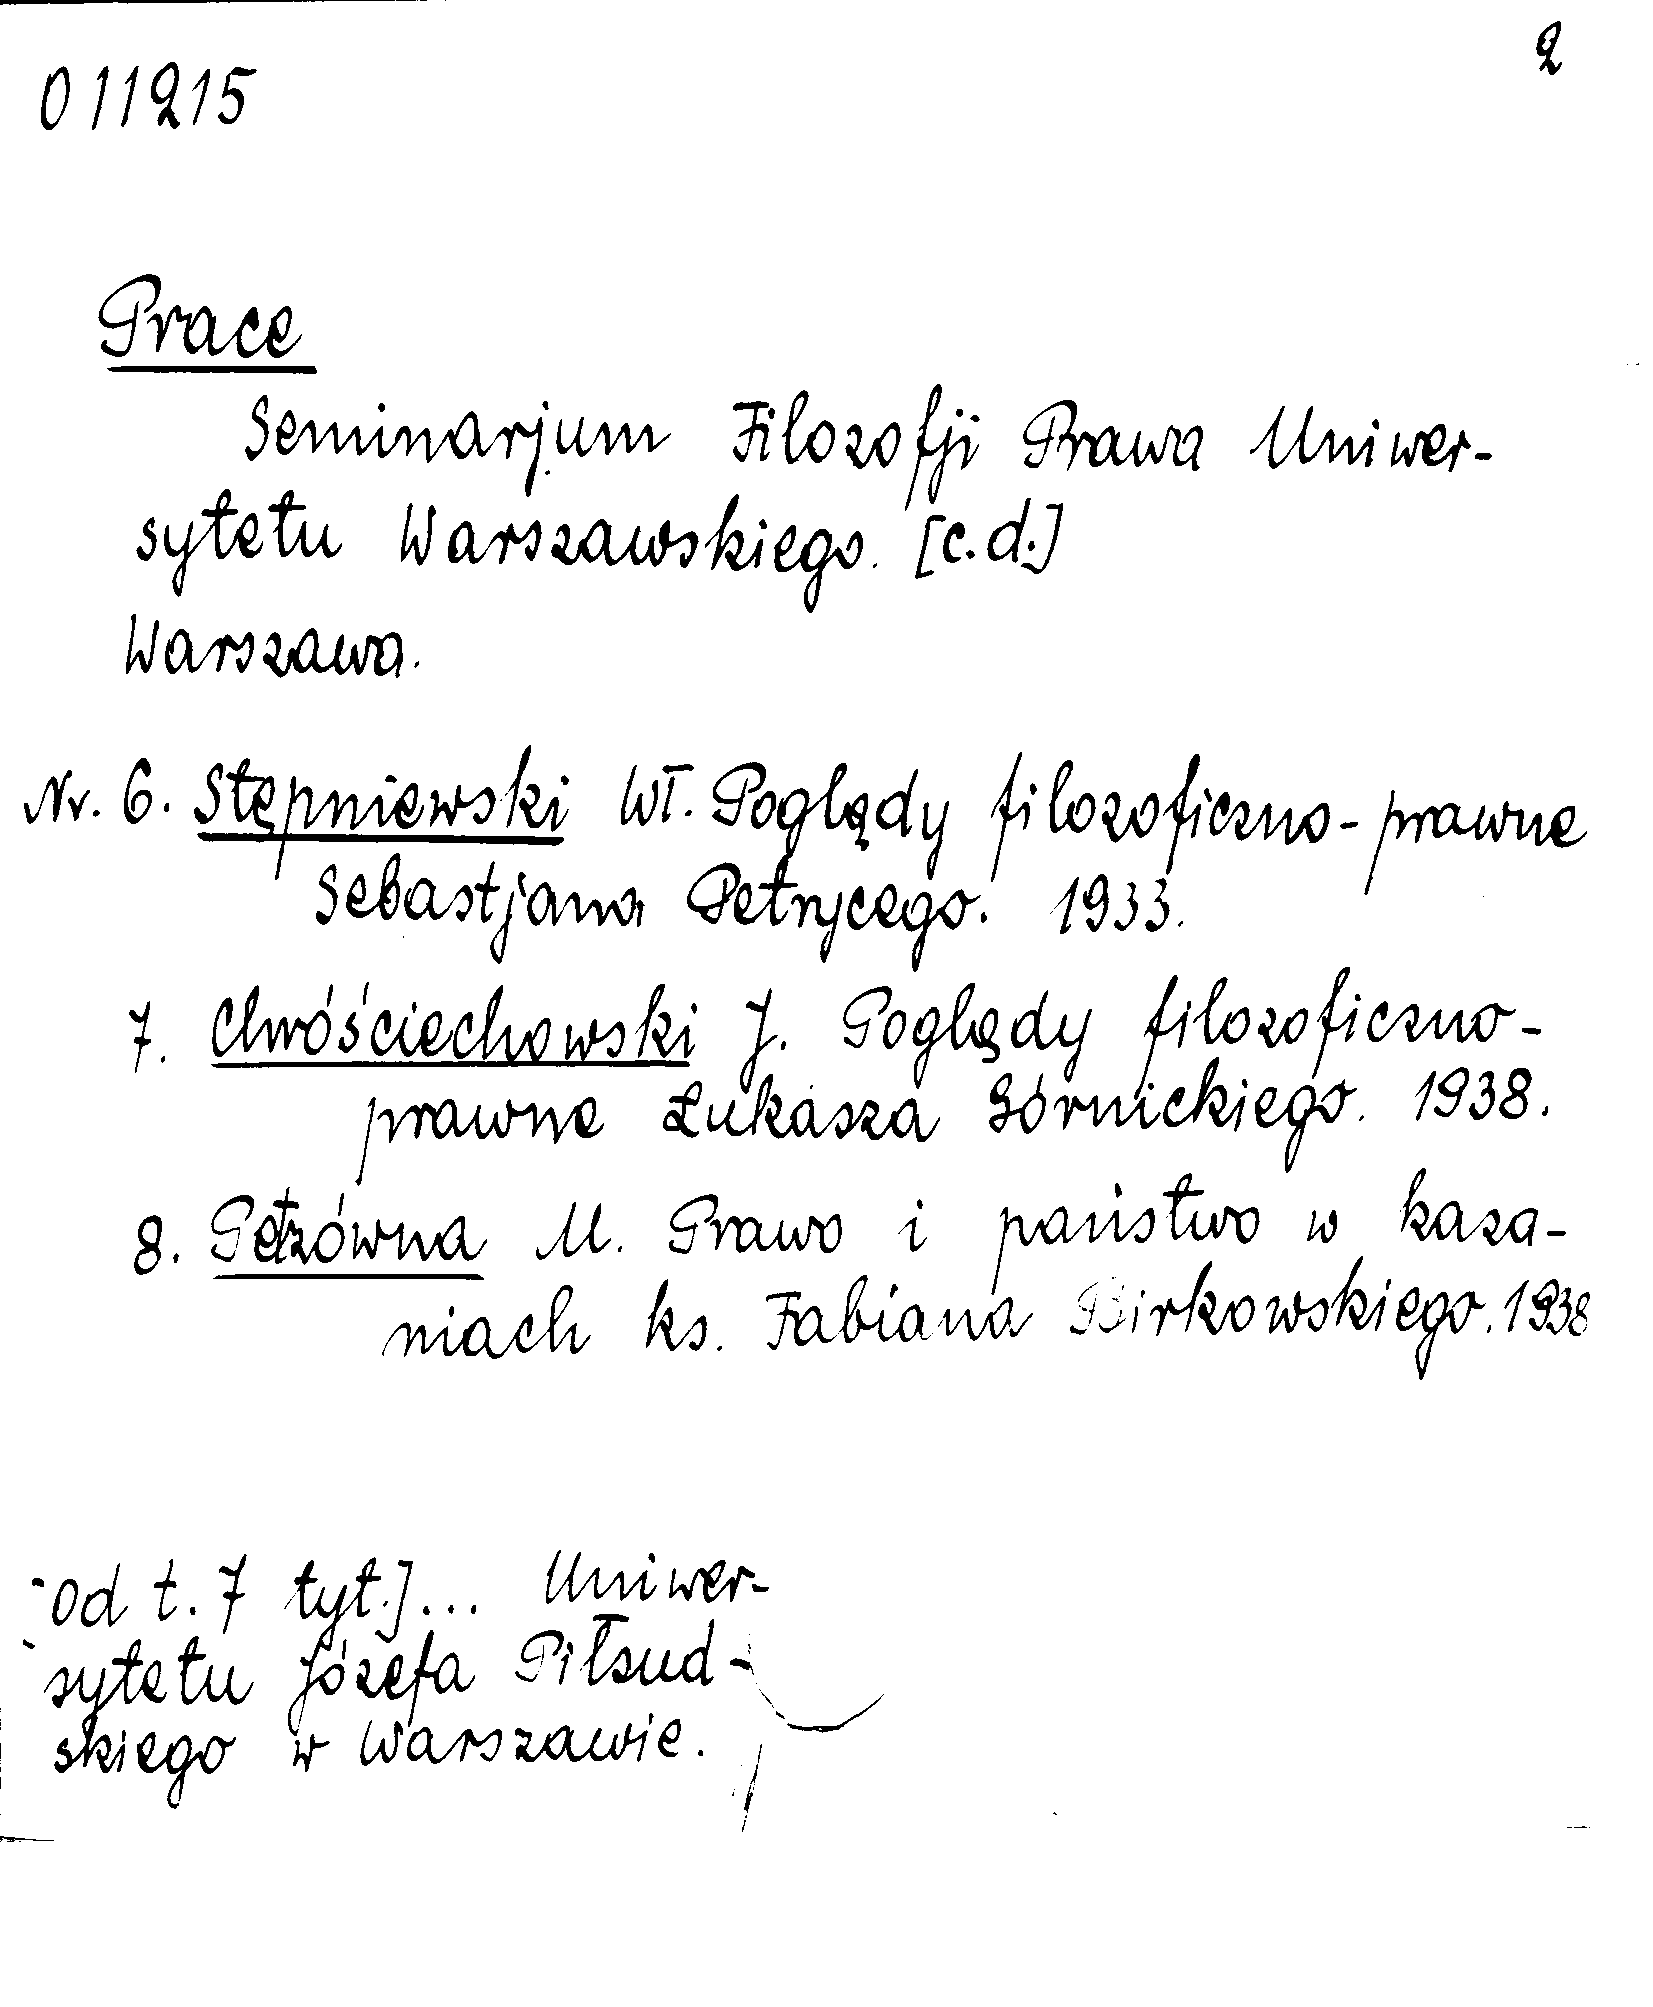 2
011215
Prace
Seminarjum Filozofji Prawa Uniwer-
sytetu Warszawskiego. [c.d.]
Warszawa.
Nr. 6. Stępniewski Wł. Poglądy filozoficzno-prawne
Sebastjana Petrycego. 1933.
7. Chwóściechowski J. Poglądy filozoficzno-
prawne Łukasza Górnickiego. 1938.
8. Petzówna M. Prawo i państwo w kaza-
niach ks. Fabiana Birkowskiego. 1938
Od t. 7 tyt.]... Uniwer-
sytetu Józefa Piłsud-
skiego w Warszawie.